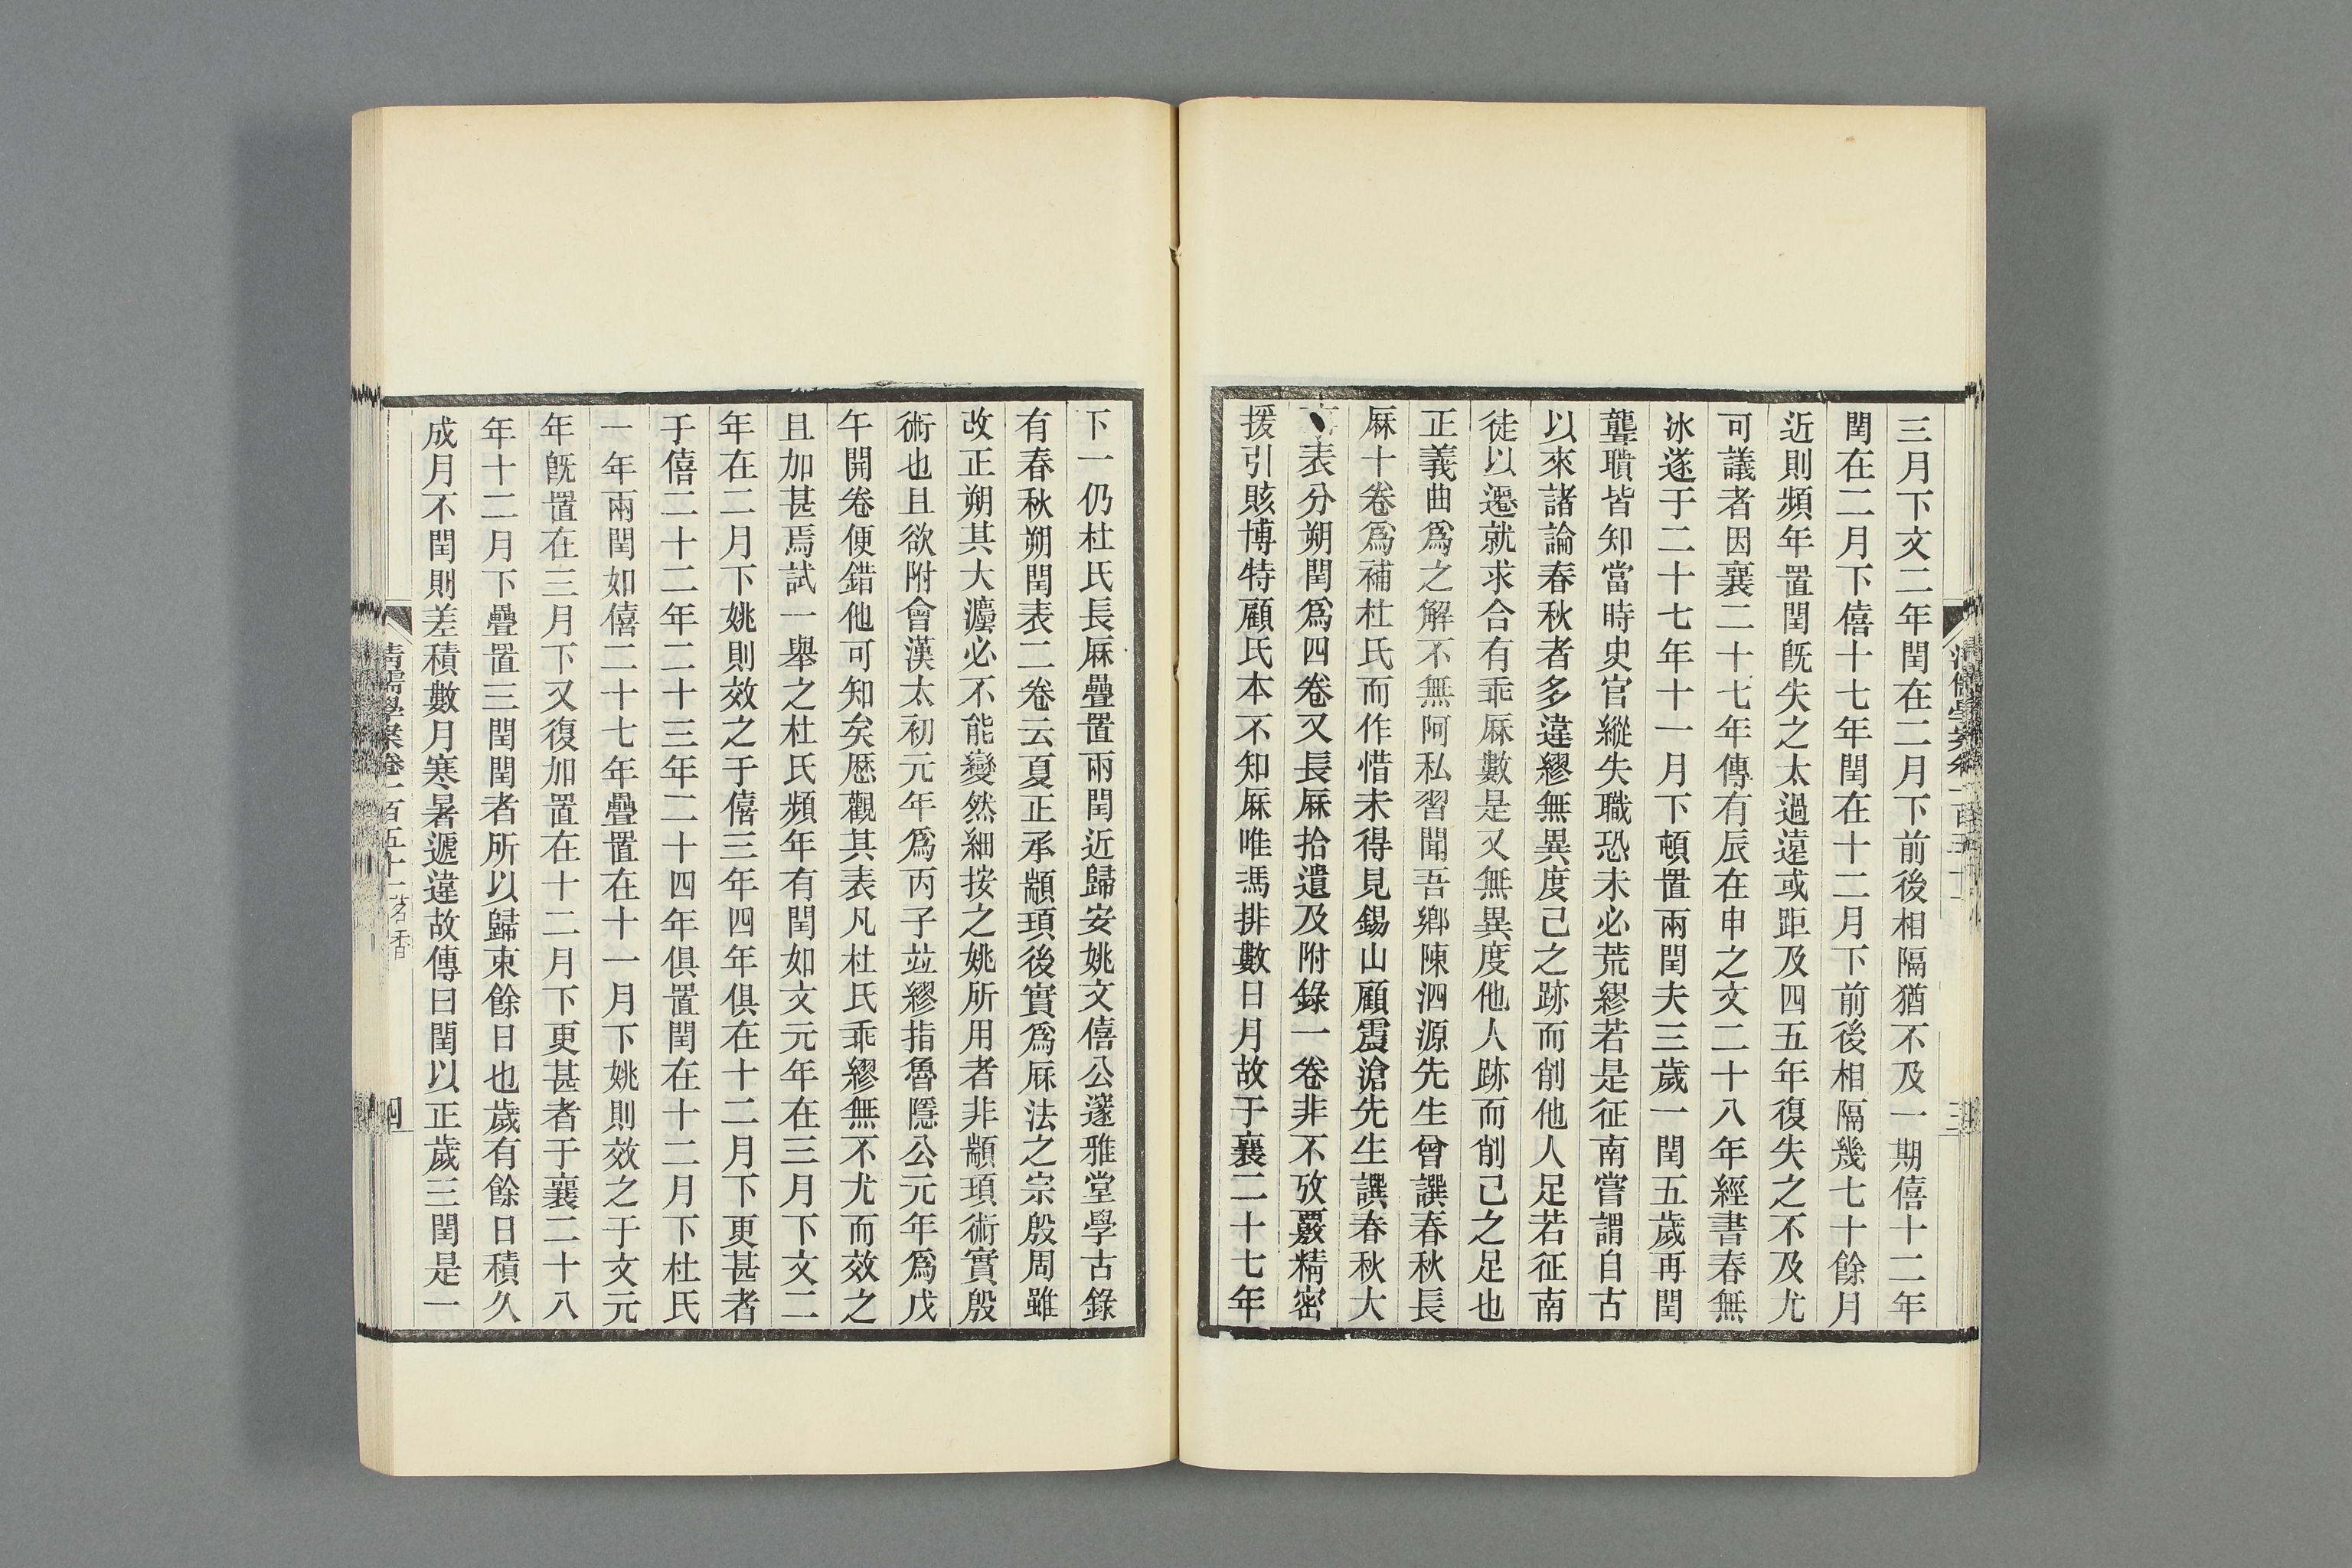 三月下文二年閏在二月下前後相隔猶不及一期僖十二年
閏在二月下僖十七年閏在十二月下前後相隔幾七十餘月
近則頻年置閏旣失之太過遠或距及四五年復失之不及尤
可議者因襄二十七年傳有辰在申之文二十八年經書春無
冰遂于二十七年十一月下頓置兩閏夫三歲一閏五歲再閏
聾聵皆知當時史官縱失職恐未必荒繆若是征南嘗謂自古
以來諸論春秋者多違繆無異度己之跡而削他人足若征南
徒以遷就求合有乖厤數是又無異度他人跡而削己之足也
正義曲爲之解不無阿私習聞吾鄉陳泗源先生曾譔春秋長
厤十卷爲補杜氏而作惜未得見錫山顧震滄先生譔春秋大
表分朔閏爲四卷又長厤拾遺及附錄一卷非不攷覈精密
援引賅博特顧氏本不知厤唯馮排數日月故于襄二十七年
下一仍杜氏長厤疊置兩閏近歸安姚文僖公邃雅堂學古錄
有春秋朔閏表二卷云夏正承顓頊後實爲厤法之宗殷周雖
改正朔其大灋必不能變然細按之姚所用者非顓頊術實殷
術也且欲附會漢太初元年爲丙子竝繆指魯隱公元年爲戊
午開卷便錯他可知矣厯觀其表凡杜氏乖繆無不尤而效之
且加甚焉試一舉之杜氏頻年有閏如文元年在三月下文二
年在二月下姚則效之于僖三年四年俱在十二月下更甚者
于僖二十二年二十三年二十四年俱置閏在十二月下杜氏
一年兩閏如僖二十七年疊置在十一月下姚則效之于文元
年旣置在三月下又復加置在十二月下更甚者于襄二十八
年十二月下疊置三閏閏者所以歸朿餘日也歲有餘日積久
成月不閏則差積數月寒暑遞違故傳曰閏以正歲三閏是一
清儒學案卷一百五十一 茗香
四